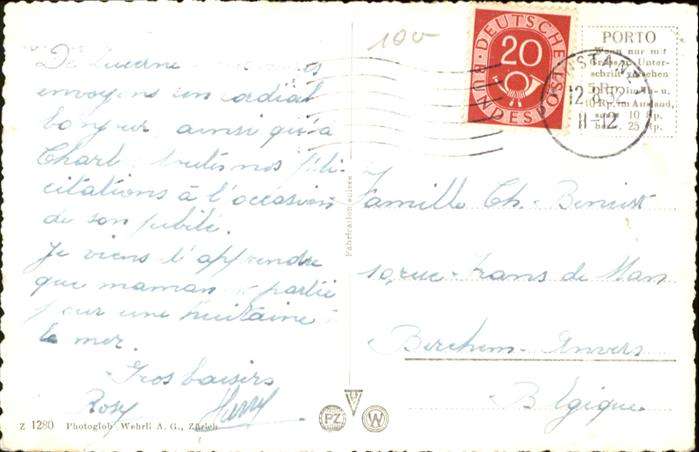 100
DEUTSCHE BUNDESPOST
20
PORTO
Wenn nur mit
Gruss u. Unter-
schrift versehen
5 Rp. Inland u.
10 Rp. im Ausland,
sonst 10 Rp.
bzw. 25 Rp.
KONSTANZ
12.8.52
11-12
De Lucerne
envoyons un cordial
bonjour ainsi qu'à
Charl. toutes nos féli-
citations à l'occasion
de son jubilé.
Je viens d'apprendre
que maman partie
pour une huitaine
la mer.
Gros baisers
Rosy Henry
Famille Ch. Benoist
10, rue Frans de Man
Berchem-Anvers
Belgique
Fabrication suisse
Z 1280 Photoglob-Wehrli A. G., Zürich
PZ
W